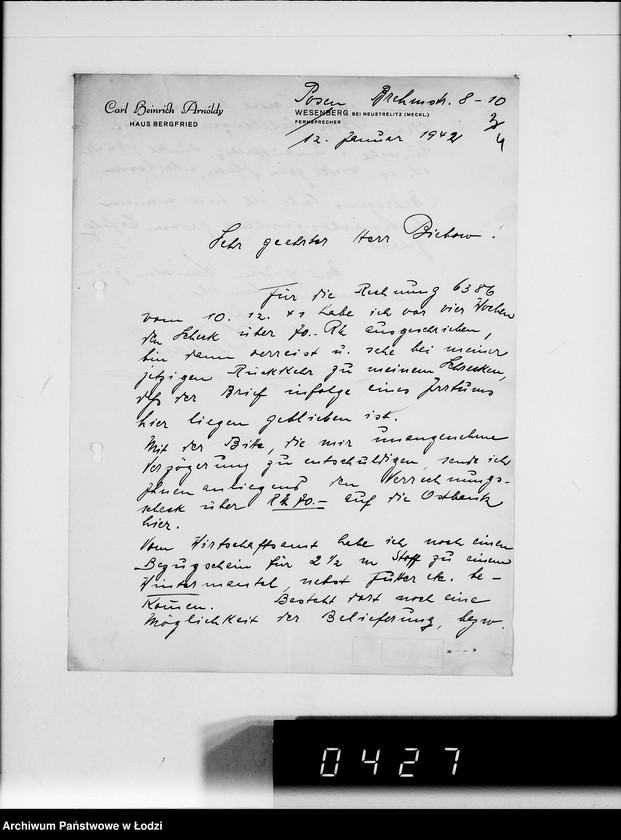 Carl Heinrich Arnóldy
HAUS BERGFRIED
Posen Brehmstr. 8-10
WESENBERG BEI NEUSTRELITZ (MECKL)
FERNSPRECHER
12. Januar 1942
Sehr geehrter Herr Biebow!
Für die Rechnung 6386
vom 10. 12. 41 habe ich vor vier Wochen
den Scheck über 70.- Rk ausgeschrieben,
bin dann verreist u. sehe bei meiner
jetzigen Rückkehr zu meinem Schrecken,
daß der Brief infolge eines Irrtums
hier liegen geblieben ist.
Mit der Bitte, die mir unangenehme
Verzögerung zu entschuldigen, sende ich
Ihnen anliegend den Verrechnungs-
scheck über Rk 70.- auf die Ostbank
hier.
Vom Wirtschaftsamt habe ich noch einen
Bezugschein für 2 1/2 m Stoff zu einem
Wintermantel, nebst Futter etc. be-
kommen. Besteht dort noch eine
Möglichkeit der Belieferung, bezw.
0427
Archiwum Państwowe w Łodzi